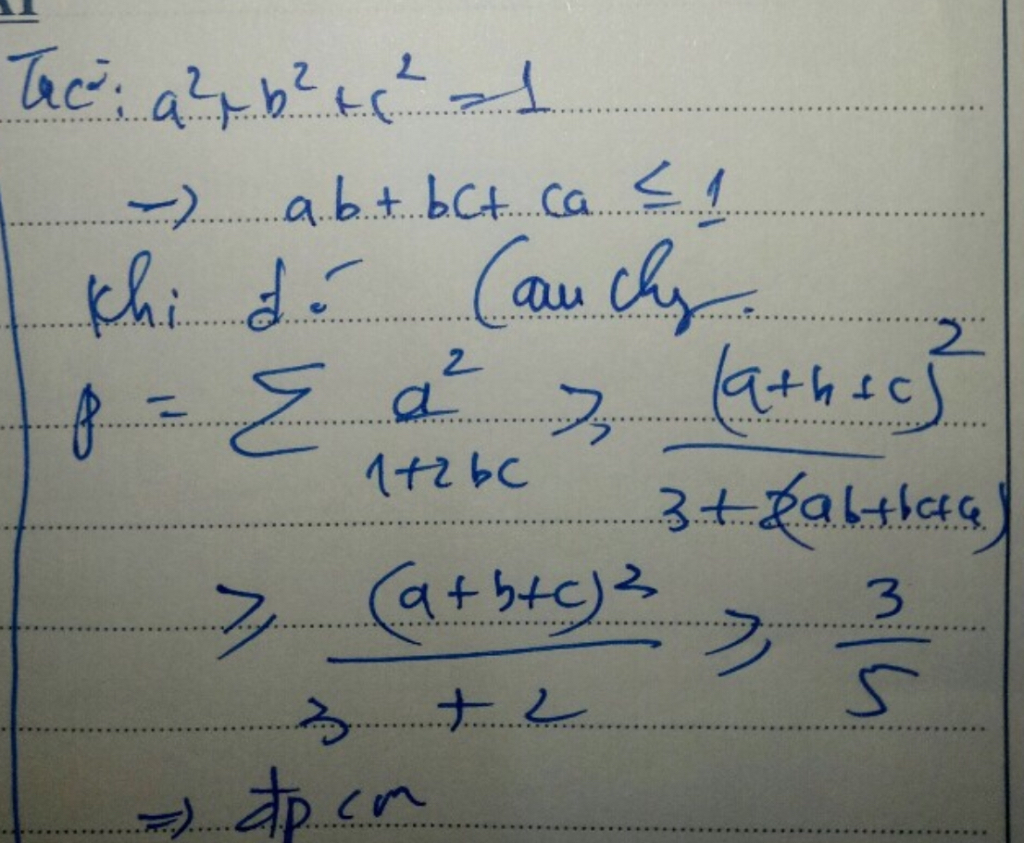 Ta có: a² + b² + c² = 1
→ ab + bc + ca ≤ 1
Khi đó Cauchy.
P = Σ a²/(1+2bc) ≥ (a+b+c)²/(3+2(ab+bc+ca))
≥ (a+b+c)²/(3+2) ≥ 3/5
⇒ đpcm